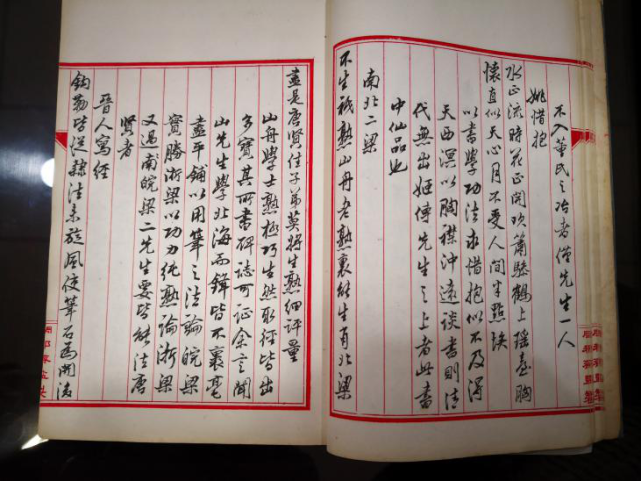 不入董氏之冶者僅先生一人
姚惜抱
水正流時花正開吹簫騎鶴上瑤臺胸
懷直似天心月不受人間半點埃
以書學功法求惜抱似不及得
天西溟以胸襟沖遠談書則清
代無出姬傳先生之上者此書
中仙品也
南北二梁
不生祇熟山舟老熟裏能生有北梁
盡是唐賢佳子弟莫將生熟細評量
山舟學士熟極巧生然取徑皆出
多寶其所書碑誌可證余言聞
山先生學北海而鋒皆不裹毫
盡平鋪以用筆之法論皖梁
實勝浙梁以功力純熟論浙梁
又過於皖梁二先生要皆能法唐
賢者
晉人寫經
鉤勒皆從隸法來旋風使筆石為開